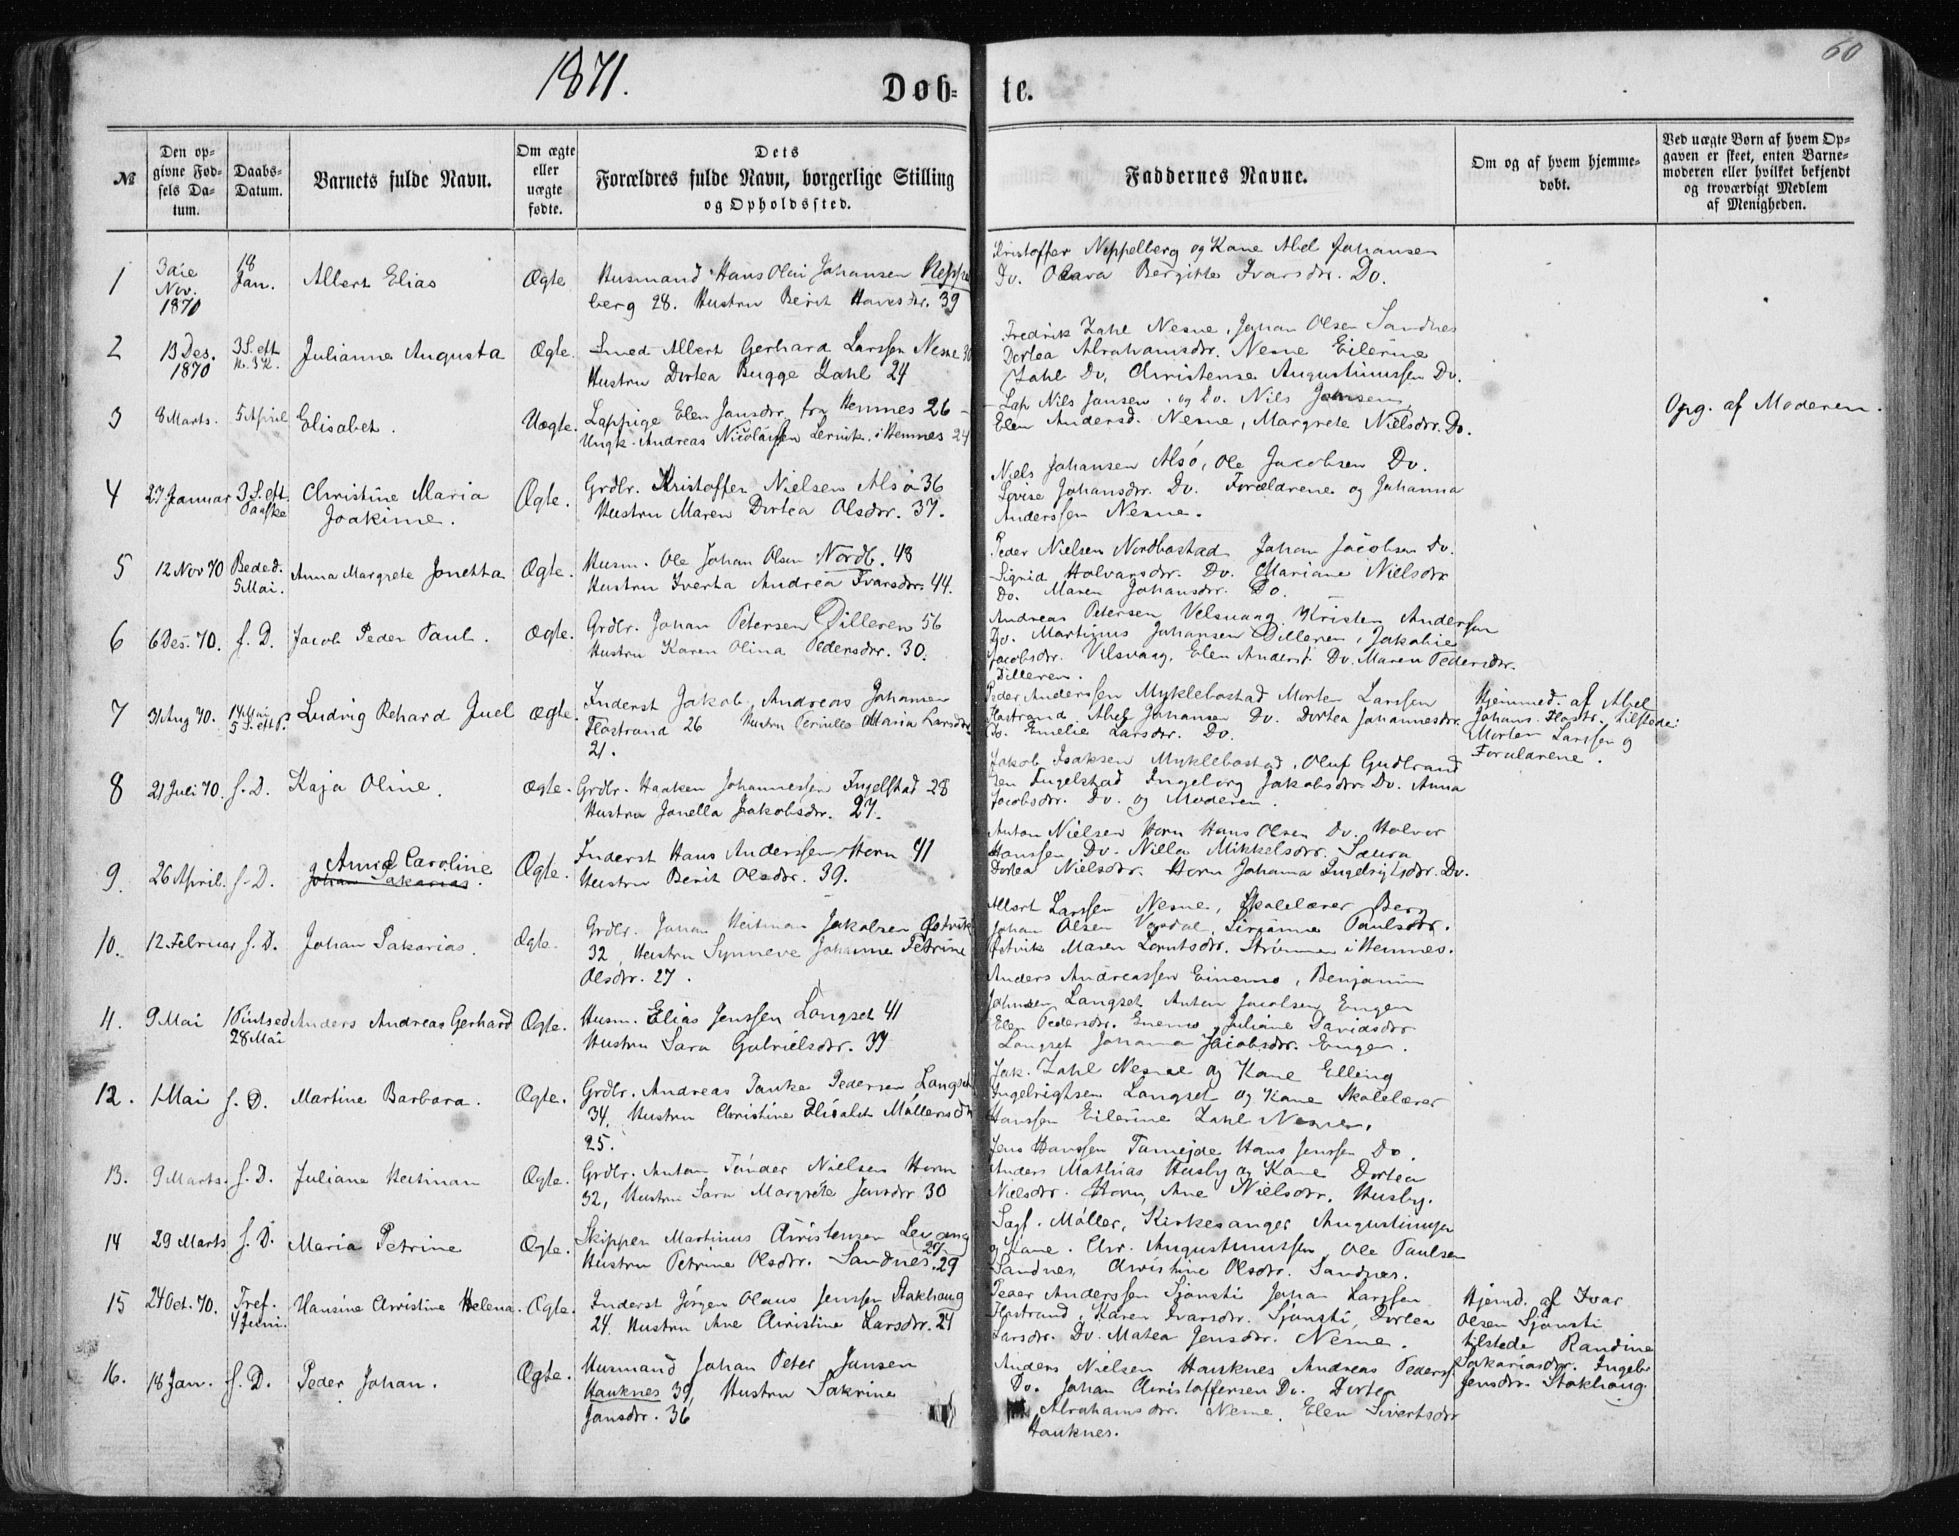 1871.
Døb-
te.
60
№
Den op-
givne Fød-
sels Da-
tum.
Daabs-
Datum.
Barnets fulde Navn.
Om ægte
eller
uægte
fødte.
Dets
Forældres fulde Navn, borgerlige Stilling
og Opholdssted.
Faddernes Navne.
Om og af hvem hjemme-
døbt.
Ved uægte Børn af hvem Op-
gaven er skeet, enten Barne-
moderen eller hvilket bekjendt
og troværdigt Medlem
af Menigheden.
1
3die
Nov.
1870
18
Jan.
Albert Elias
Ægte
Husmand Hans Olai Johansen Neppel
berg 28. Hustru Berit Hansdr. 39
Kristoffer Neppelberg og Kone Abel Johansen
Do. Olava Bergitte Ivarsdr. Do.
2
13 Des.
1870
3 S. eft
H. 3 K.
Julianna Augusta
Ægte.
Smed Albert Gerhard Larssen Nesne 30
Hustru Dortea Bugge Zahl 24
Fredrik Zahl Nesne, Johan Olsen Sandnes
Dortea Abrahamsdr. Nesne Eilerine
Zahl Do, Christense Augustinussen Do.
3
8 Marts.
5 April
Elisabet.
Uægte.
Lappige Elen Jansdr. fra Hemnes 26
Ungk. Andreas Nicolaissen i Hemnes 24
Lap Nils Jansen og Do. Nils Johnsen
Elen Andersd. Nesne, Margrete Nielsdr. Do.
Opg. af Moderen.
4
27 Januar
3 S. eft.
Paaske
Christine Maria
Joakime.
Ægte.
Grdlr. Kristoffer Nielsen Alsø 36
Hustru Maren Dortea Olsdr. 37.
Niels Johansen Alsø, Ole Jacobsen Do.
Lovise Johansdr. Do. Forældrene og Johanna
Anderssen Nesne.
5
12 Nov 70
Beded.
5 Mai.
Anna Margrete Jonetta
Ægte.
Husm. Ole Johan Olsen Nordb. 48
Hustru Iverta Andrea Ivarsdr. 44.
Peder Nielsen Nordbostad Johan Jacobsen Do.
Sigrid Halvarsdr. Do. Mariane Nielsdr
Do. Maren Johansdr. Do.
6
6 Des. 70.
s. D.
Jacob Peder Paul.
Ægte.
Grdlr. Johan Petersen Dilleren 56
Hustru Karen Olina Pedersdr. 30.
Andreas Petersen Velsvaag, Kristen Andersen
Do. Martinus Johansen Dilleren, Jakobie
Jacobsdr. Velsvaag, Elen Andersd. Do. Maren Pedersdr.
Dilleren.
7
31 Aug 70.
14 Mai
5 S. eft P.
Ludvig Rehard Juel
Ægte.
Inderst Jakob Andreas Johansen
Flostrand 26 Hustru Maria Larsdr.
21.
Peder Anderssen Myklebostad Morten Larssen
Flostrand Abel Johansen Do. Dortea Johannesdr.
Do. Emelie Larsdr. Do.
Hjemmed. af Abel
Johans. Flostr. tilstede:
Morten Larssen og
Forældrene.
8
21 Juli 70.
s. D.
Kaja Oline.
Ægte.
Grdlr. Haaken Johannessen Fugelstad 28
Hustru Janella Jakobsdr. 27.
Jakob Isaksen Myklebostad, Oluf Gudbrand
sen Fugelstad Ingeborg Jakobsdr. Do. Anna
Jacobsdr. Do. og Moderen.
9.
26 April.
s. D.
Anne Caroline
Johan Sakarias.
Ægte.
Inderst Hans Anderssen Horn 41
Hustru Berit Olsdr. 39.
Anton Nielsen Horn Hans Olsen Do. Halvor
Hanssen Do. Nilla Mikkelsdr. Saura
Dortea Nielsdr. Horn Johanna Ingebrigtsdr. Do.
10.
12. Februar
s. D.
Johan Sakarias.
Ægte.
Grdlr. Johan Heitman Jakobsen Østvik
32, Hustru Synneve Johanne Petrine
Olsdr. 27.
Albert Larssen Nesne, Skolelærer Berg
Johan Olsen Vardal, Sirianna Paulsdr.
Østvik Maren Lorntsdr. Strømmen i Hemnes.
11.
9 Mai
1 Pintsed
28 Mai
Anders Andreas Gerhard
Ægte.
Husm. Elias Jenssen Langset 41
Hustru Sara Gabrielsdr. 37
Anders Andreassen Einemo, Benjamin
Johnsen Langset Anton Jacobsen Engen
Elen Pedersdr. Enemo, Juliane Davidsdr
Langset Johanna Jacobsdr. Engen.
12.
1 Mai
s. D.
Martine Barbara.
Ægte.
Grdlr. Andreas Tanke Pedersen Langset
34. Hustru Christine Elisabet Møllersdr
25.
Jak. Zahl Nesne og Kone Elling
Ingebrigtsen Langset og Kone Skolelærer
Hanssen Eilerine Zahl Nesne.
13.
9 Marts.
s. D.
Juliane Heitman
Ægte.
Grdlr. Anton Tønder Nielsen Horn
32, Hustru Sara Margrete Jensdr 30
Jens Hanssen Tameide Hans Jenssen Do.
Anders Mathias Husby og Kone Dortea
Nielsdr. Horn, Ane Nielsdr. Husby.
14
29 Marts
s. D.
Maria Petrine
Ægte.
Skipper Martinus Christensen Levang
27.
Hustru Petrine Olsdr. Sandnes. 29
Sagf. Møller, Kirkesanger Augustinussen
og Kone. Chr. Augustinussen, Ole Paulsen
Sandnes, Christine Olsdr. Sandnes.
15
24 Oct. 70.
Tref.
4 Juni.
Hansine Christine Helena.
Ægte.
Inderst Jørgen Olaus Jenssen Stakhaug
24. Hustru Ane Christine Larsdr. 24
Peder Anderssen Sjonsti Johan Larssen
Flostrand, Karen Ivarsdr. Sjonsti, Dortea
Larsdr. Do. Matea Jensdr. Nesne.
Hjemd. af Ivar
Olsen Sjonsti
tilstede Randine
Sakariasdr. Ingebr
Jensdr. Stokhaug.
16.
18 Jan.
s. D.
Peder Johan.
Ægte.
Husmand Johan Peter Jansen
Hauknes 39, Hustru Sakrine
Jansdr. 36
Anders Nielsen Hauknes Andreas Peders.
Do. Johan Christoffersen Do. Dortea
Abrahamsdr. Nesne. Elen Sivertsdr
Hauknes.